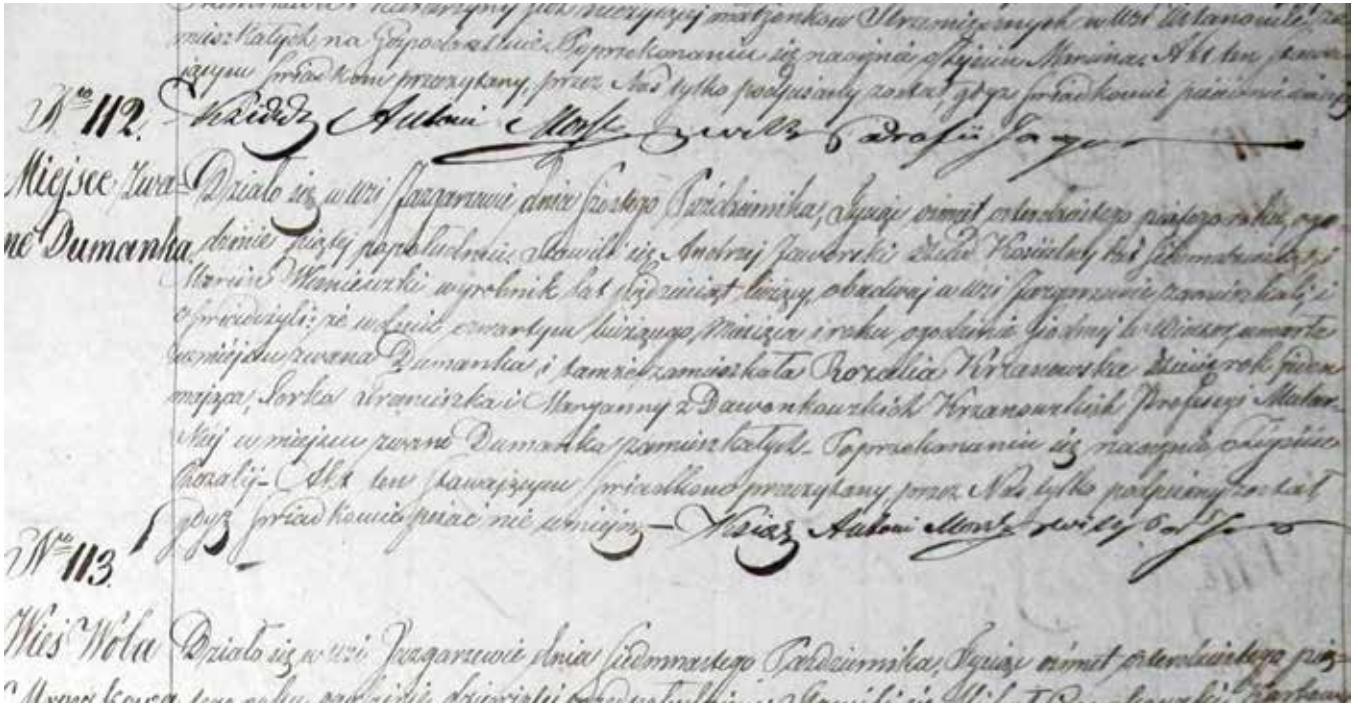 i Katarzyny małżonków w wsi
mieszkałych na Gospodarstwie. Poprzekonaniu się naocznie o życiu Maryanna, Akt ten stawa-
jącym świadkom przeczytany, przez Nas tylko podpisany został, gdyż świadkowie pisać nie umieją
Nro 112. Ksiądz Antoni Parafii
Miejsce zwa- Działo się w wsi Jazgarzewie dnia szóstego Października, Tysiąc ośmset czterdziestego piątego roku, ogo-
ne Dumanka. dzinie piątej popołudniu. Stawili się Andrzej Jaworski Dziad Kościelny lat i
Marcin Wiśniewski wyrobnik lat pięćdziesiąt liczący, obadwaj w wsi Jazgarzewie zamieszkali, i
oświadczyli: że w dniu czwartym bieżącego Miesiąca i roku, ogodzinie siódmej wieczor, umarła
w miejscu zwana Dumanka i tamże zamieszkała Rozalia Krzanowska Dziecię rok jeden
mająca, Córka Franciszka i Maryanny z Dawonkowzkich Krzanowzkich Profesyi Malar-
skiej w miejscu zwane Dumanka zamieszkałych. Poprzekonaniu się naocznie o życiu
Rozalij – Akt ten stawającym świadkom przeczytany, przez Nas tylko podpisany został
gdyż świadkowie pisać nie umieją – Ksiądz Antoni
Nro 113.
Wieś Wola Działo się w wsi Jazgarzewie dnia siedmnastego Października, Tysiąc ośmset czterdziestego pią-
tego roku, ogodzinie dziewiątej przed południem Stawili się